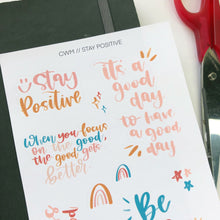 CWM // STAY POSITIVE
Stay
Positive
it's a
good
day
to have
a good
day
When you focus
on the good,
the good gets
better.
Be